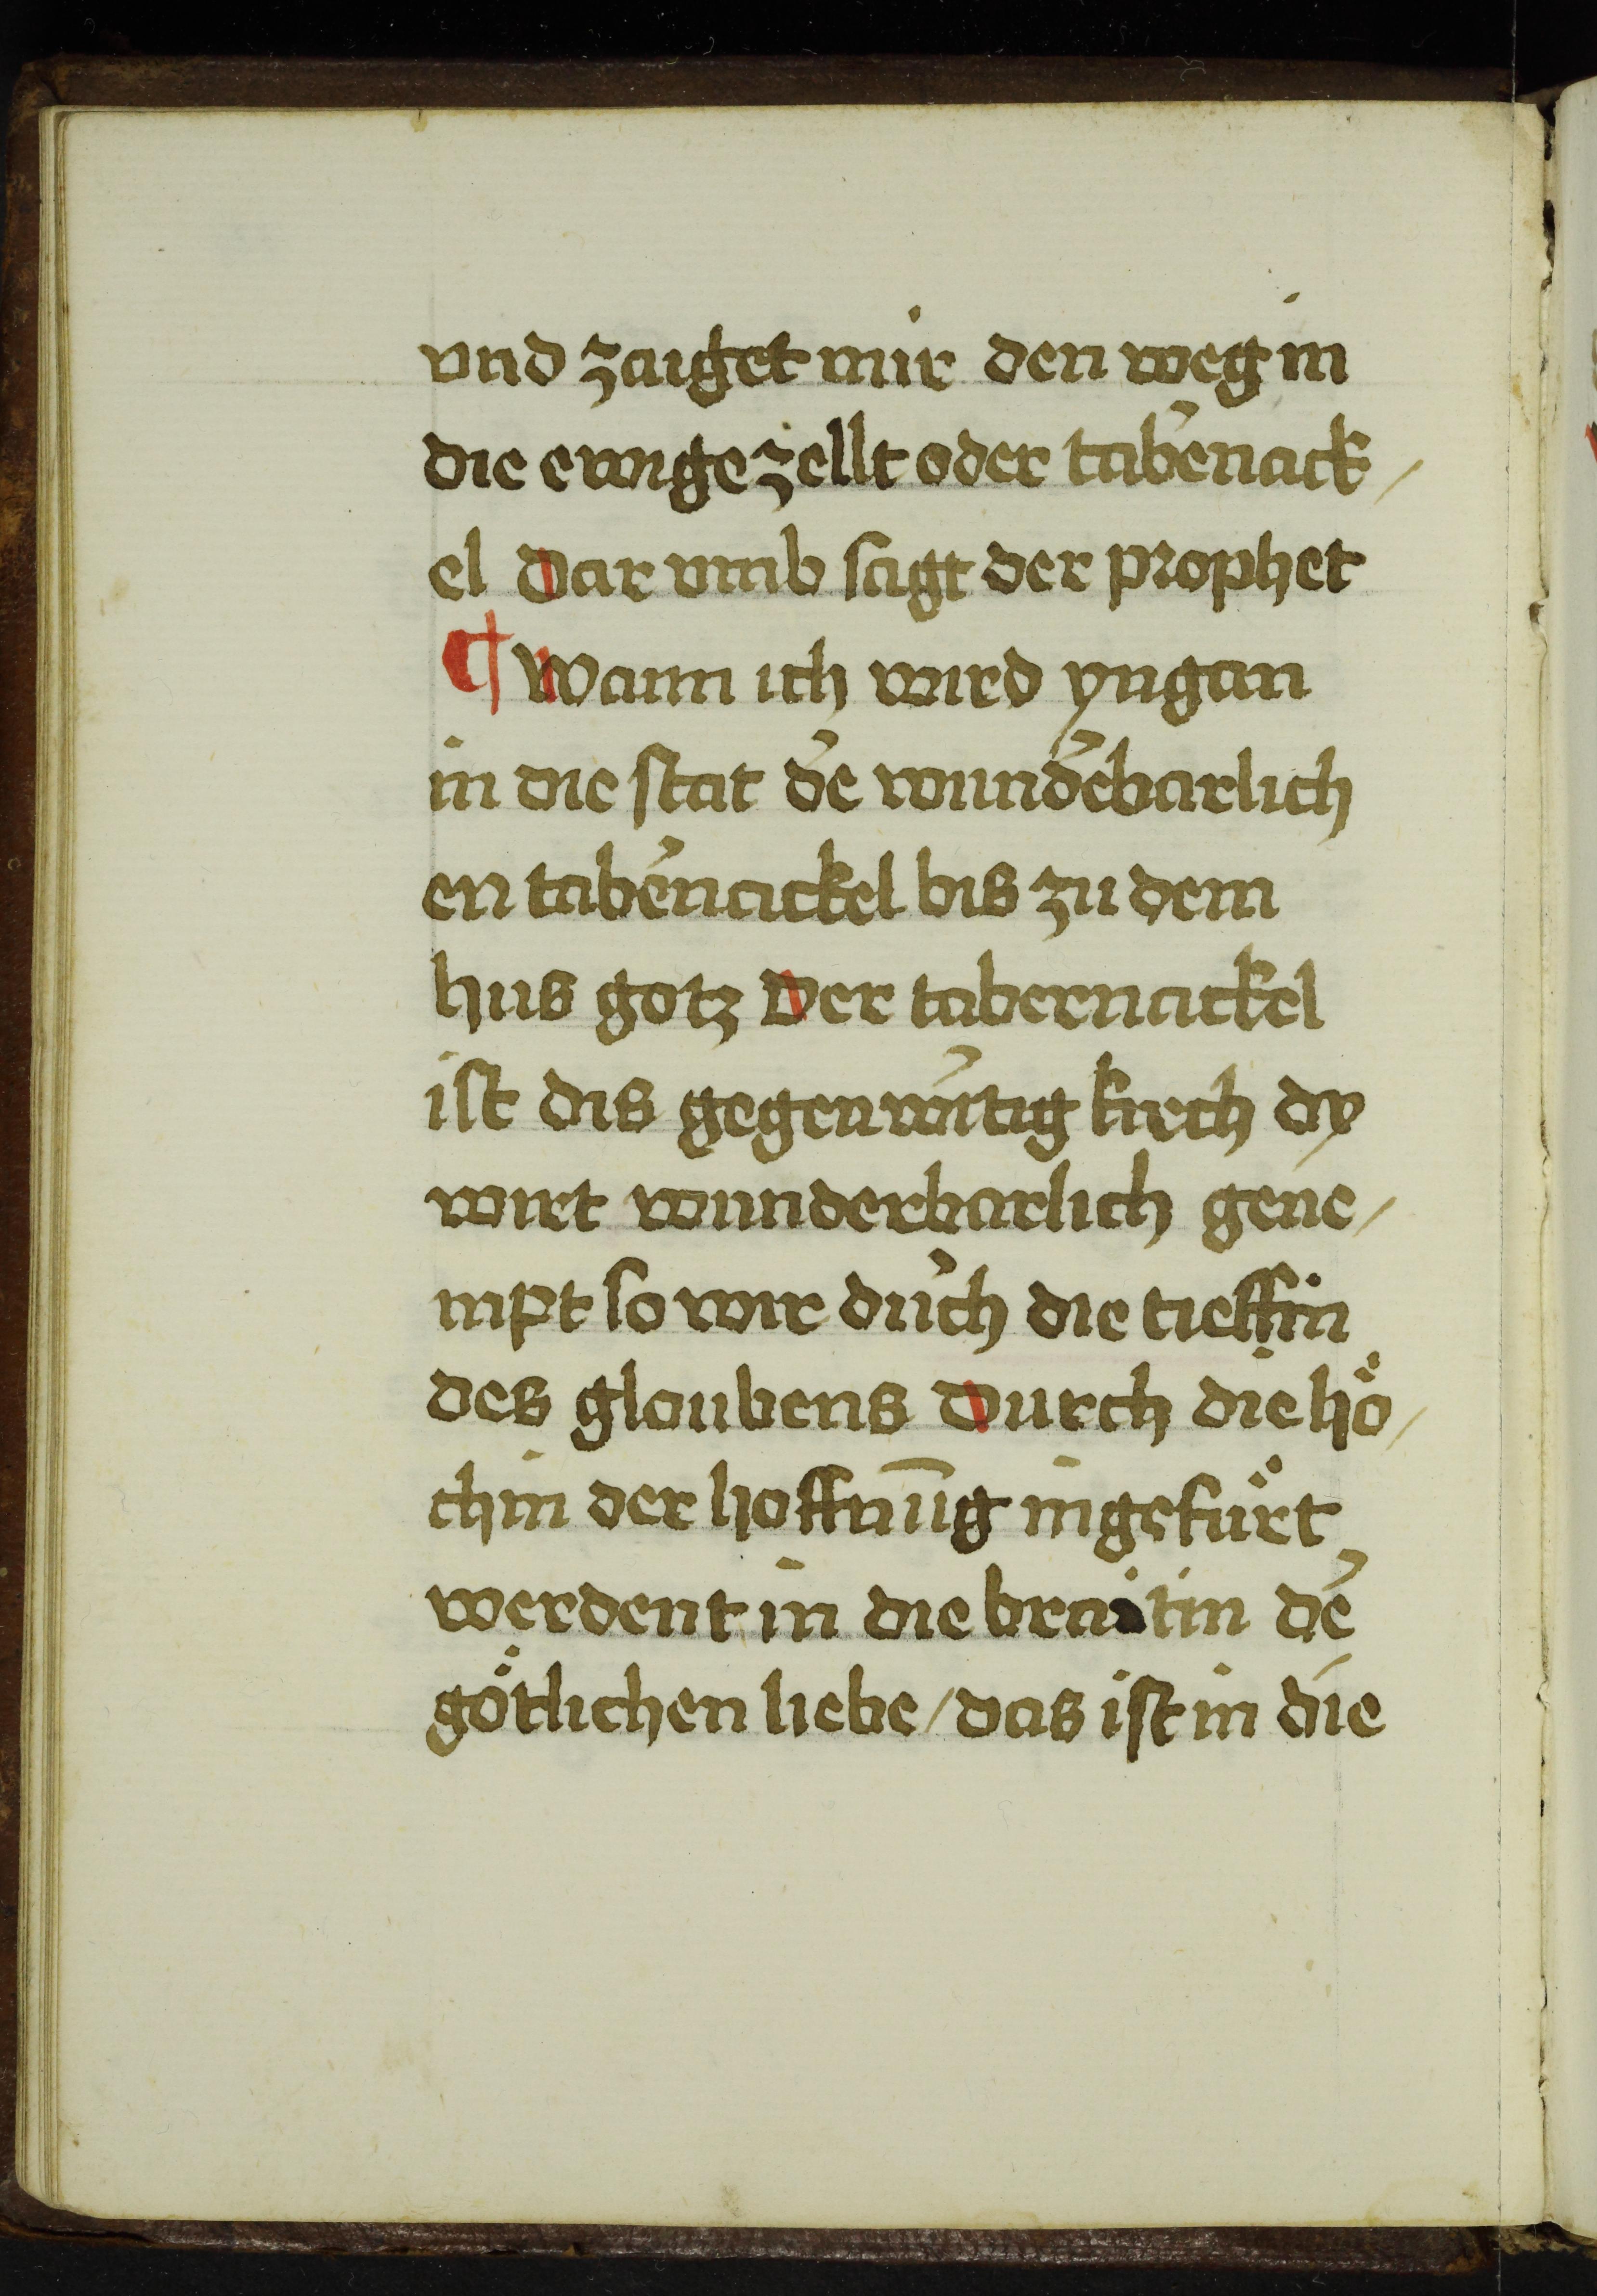 vnd zaiget mir den weg in
die ewige zellt oder tabe᷑nack /
el Dar vmb sagt der prophet
¶ Wann ich wird yngan
in die ſtat de᷑ wunde᷑barlich
en tabe᷑nackel bis zu dem
hus gotz Der tabernackel
iſt dis gegenwu᷑tig kirch dy
wirt wunderbarlich gene /
mpt so wir du᷑ch die tieffin
des gloubens Durch die hö /
chin der hoffnūg ingefürt
werdent in die braitin de᷑
götlichen liebe / das iſt in die